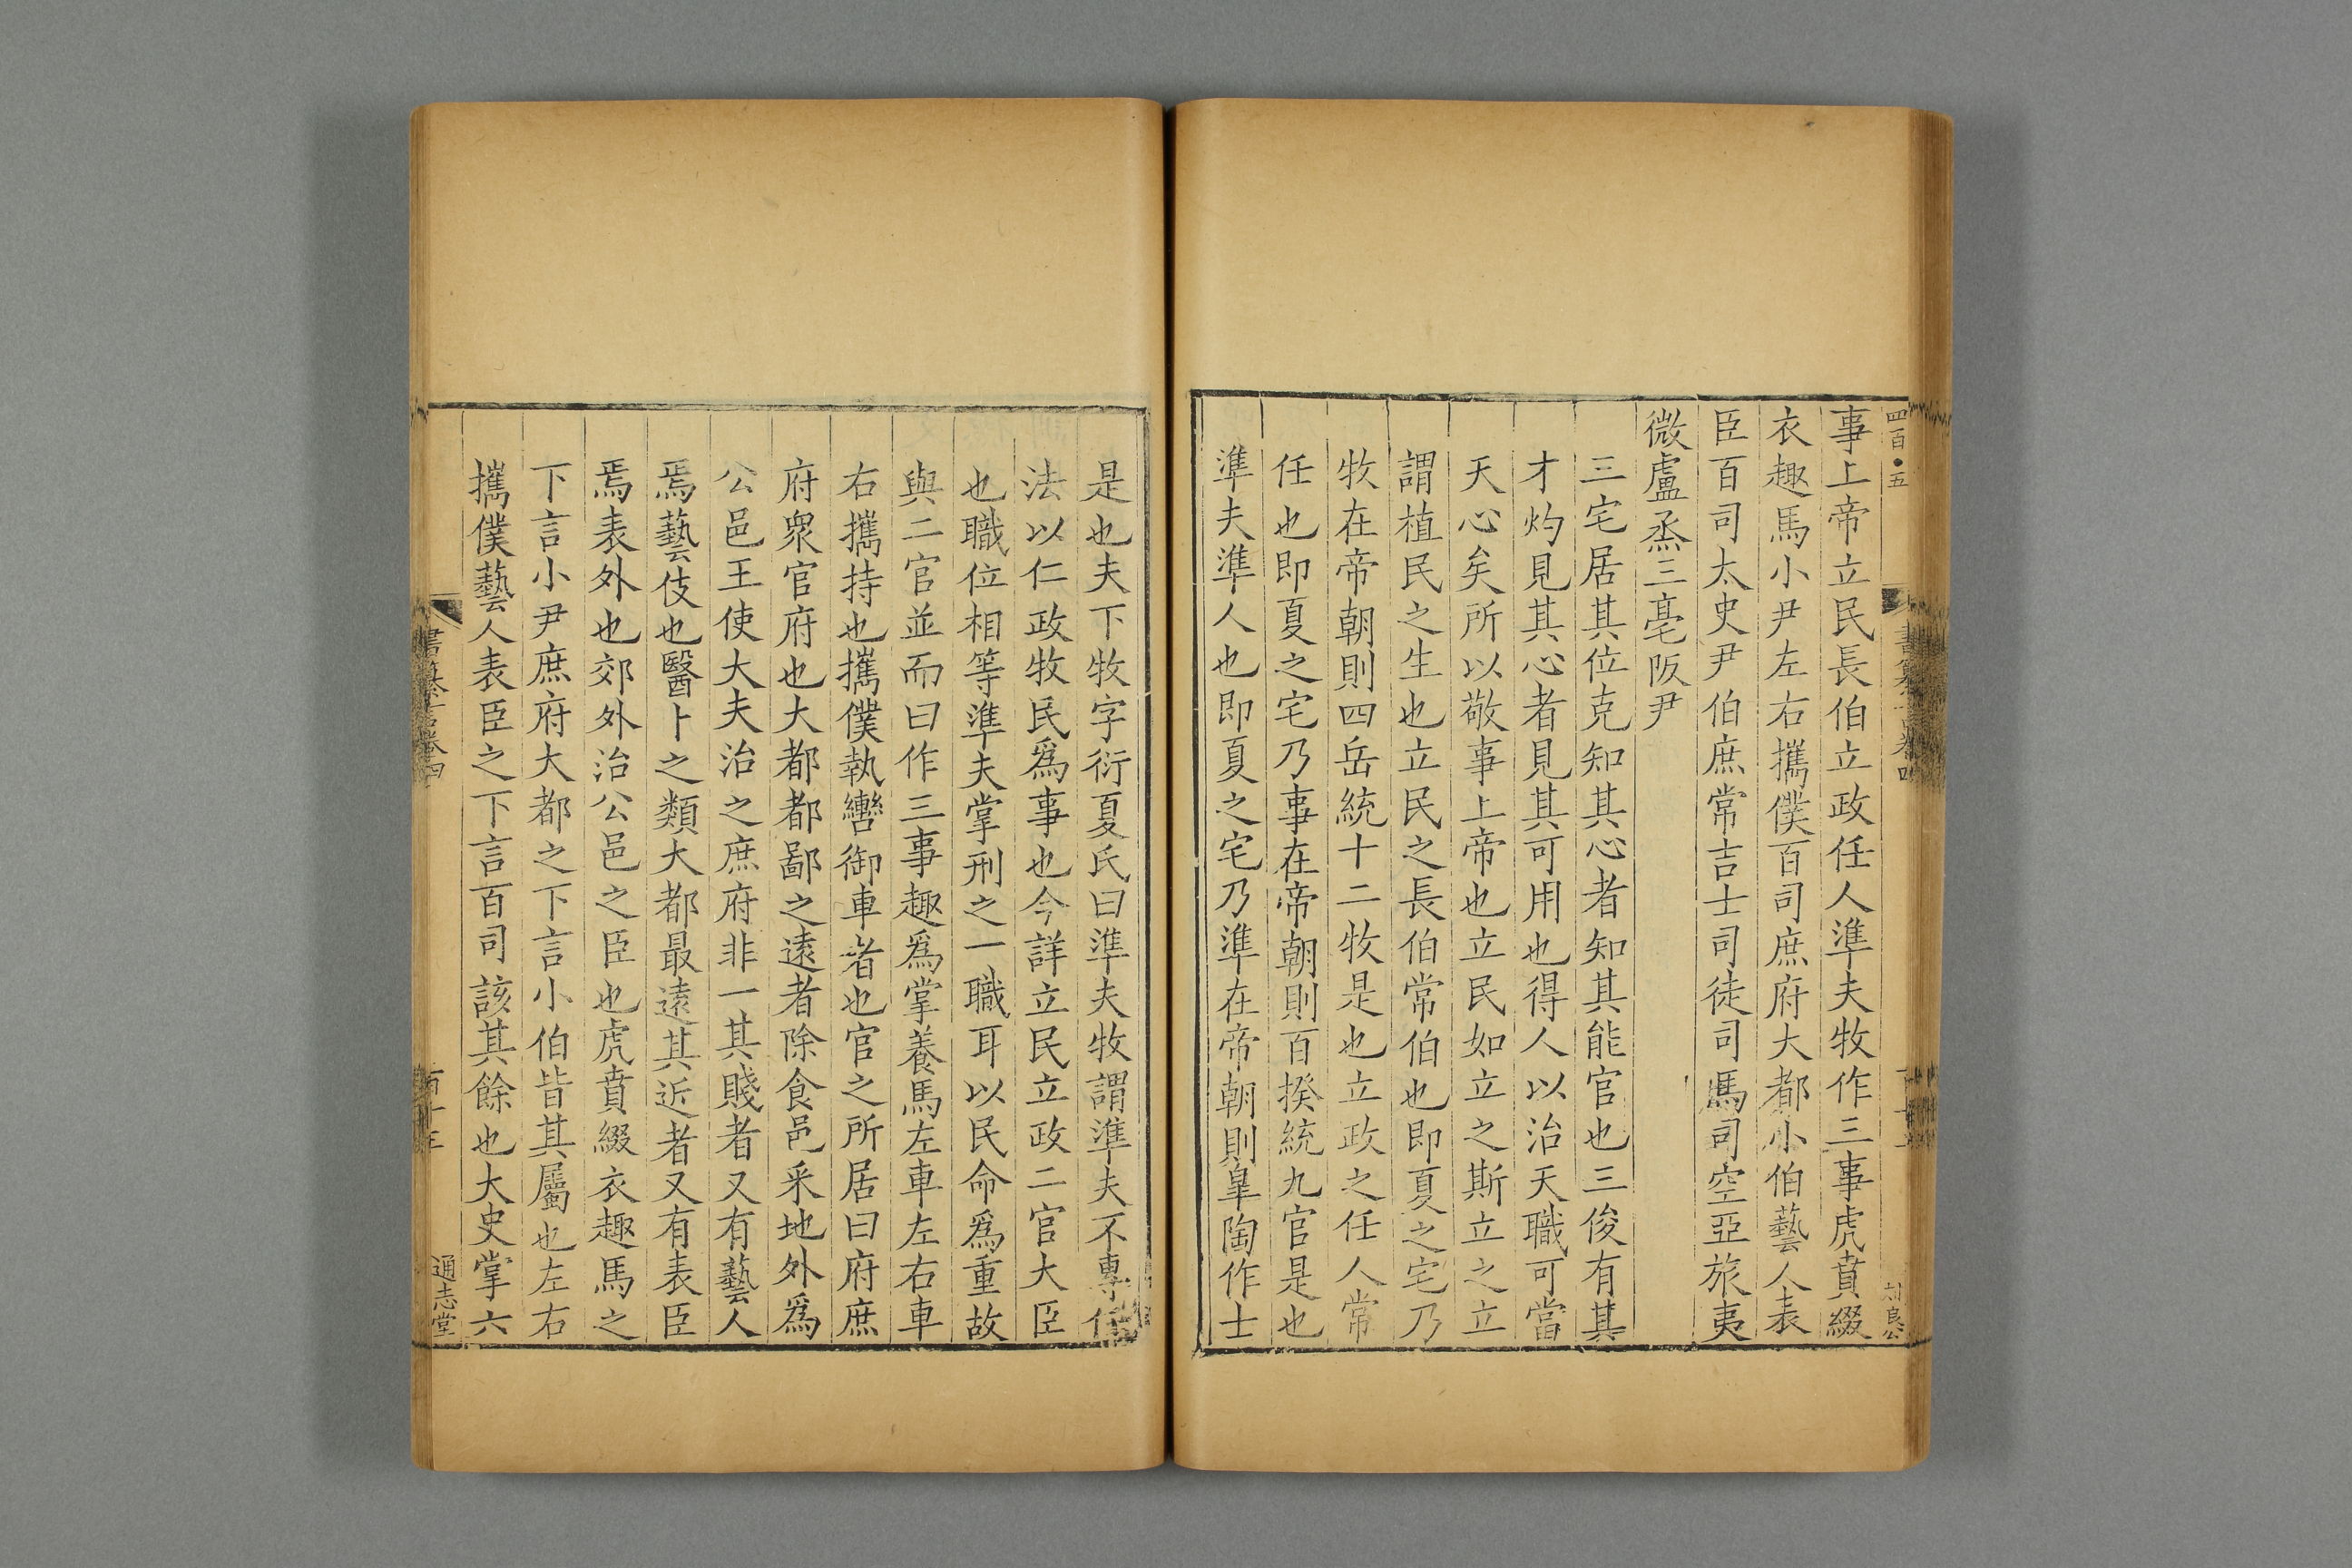 四百●五
事上帝立民長伯立政任人準夫牧作三事虎賁綴
衣趣馬小尹左右攜僕百司庶府大都小伯藝人表
臣百司太史尹伯庶常吉士司徒司馬司空亞旅夷
微盧烝三亳阪尹
三宅居其位克知其心者知其能官也三俊有其
才灼見其心者見其可用也得人以治天職可當
天心矣所以敬事上帝也立民如立之斯立之立
謂植民之生也立民之長伯常伯也即夏之宅乃
牧在帝朝則四岳統十二牧是也立政之任人常
任也即夏之宅乃事在帝朝則百揆統九官是也
準夫準人也即夏之宅乃準在帝朝則皐陶作士
是也夫下牧字衍夏氏曰準夫牧謂準夫不專任
法以仁政牧民爲事也今詳立民立政二官大臣
也職位相等準夫掌刑之一職耳以民命爲重故
與二官並而曰作三事趣爲掌養馬左車左右車
右攜持也攜僕執轡御車者也官之所居曰府庶
府衆官府也大都都鄙之遠者除食邑采地外爲
公邑王使大夫治之庶府非一其賤者又有藝人
焉藝伎也醫卜之類大都最遠其近者又有表臣
焉表外也郊外治公邑之臣也虎賁綴衣趣馬之
下言小尹庶府大都之下言小伯皆其屬也左右
攜僕藝人表臣之下言百司該其餘也大史掌六
通志堂